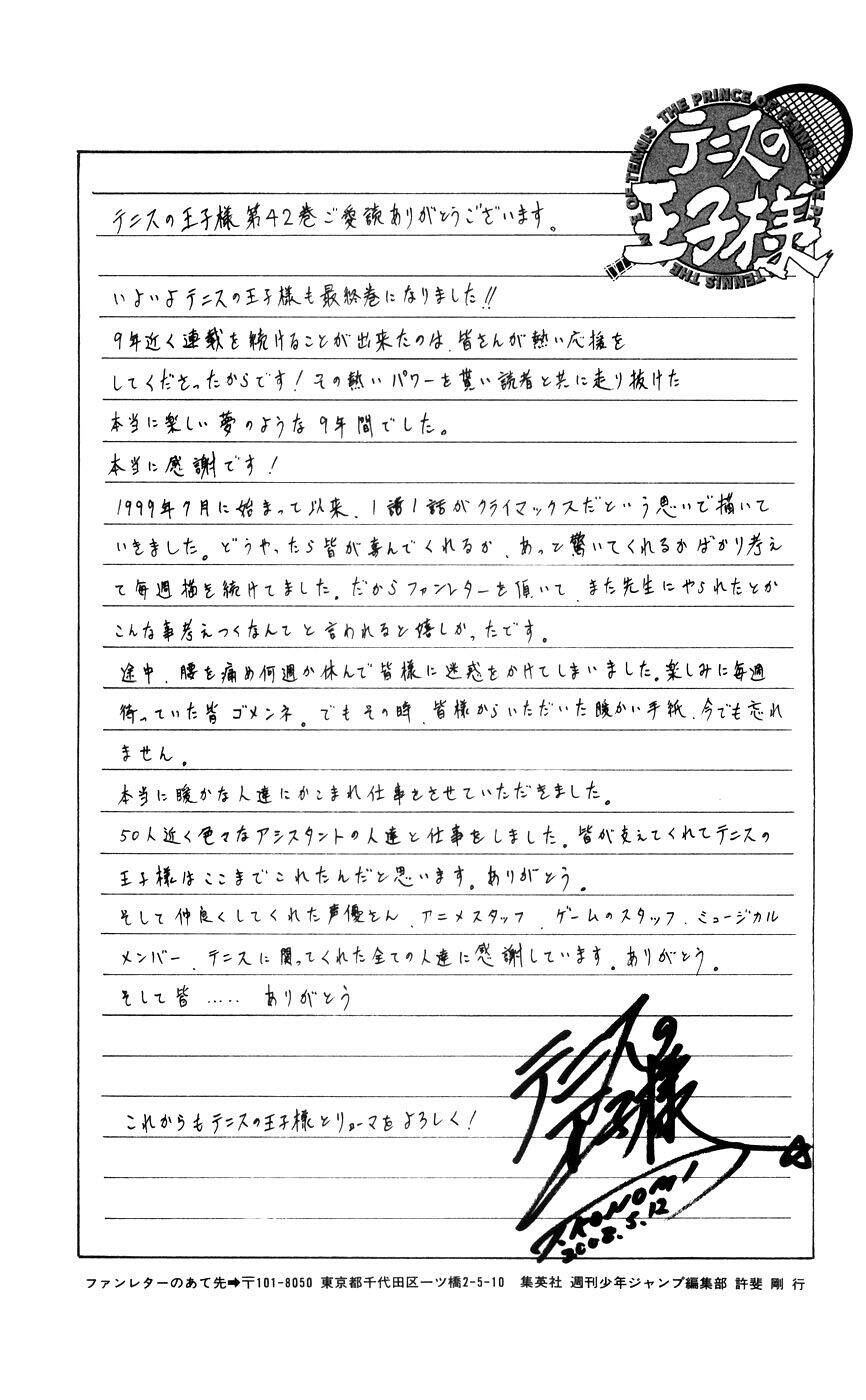 THE PRINCE OF TENNIS
テニスの
王子様
テニスの王子様第42巻ご愛読ありがとうございます。
いよいよテニスの王子様も最終巻になりました!!
9年近く連載を続けることが出来たのは、皆さんが熱い応援を
してくださったからです!その熱いパワーを貰い読者と共に走り抜けた
本当に楽しい夢のような9年間でした。
本当に感謝です!
1999年7月に始まって以来、1話1話がクライマックスだという思いで描いて
いきました。どうやったら皆が喜んでくれるか、あっと驚いてくれるかばかり考え
て毎週描き続けてました。だからファンレターを頂いて、また先生にやられたとか
こんな事考えつくなんてと言われると嬉しかったです。
途中、腰を痛め何週か休んで皆様に迷惑をかけてしまいました。楽しみに毎週
待っていた皆ゴメンネ。でもその時、皆様からいただいた暖かい手紙、今でも忘れ
ません。
本当に暖かな人達にかこまれ仕事をさせていただきました。
50人近く色々なアシスタントの人達と仕事をしました。皆が支えてくれてテニスの
王子様はここまでこれたんだと思います。ありがとう。
そして仲良くしてくれた声優さん、アニメスタッフ、ゲームのスタッフ、ミュージカル
メンバー、テニスに関ってくれた全ての人達に感謝しています。ありがとう。
そして皆……ありがとう
これからもテニスの王子様とリョーマをよろしく!
テニスの
王子様
T.KONOMI
2008.5.12
ファンレターのあて先➡〒101-8050 東京都千代田区一ツ橋2-5-10 集英社 週刊少年ジャンプ編集部 許斐 剛 行